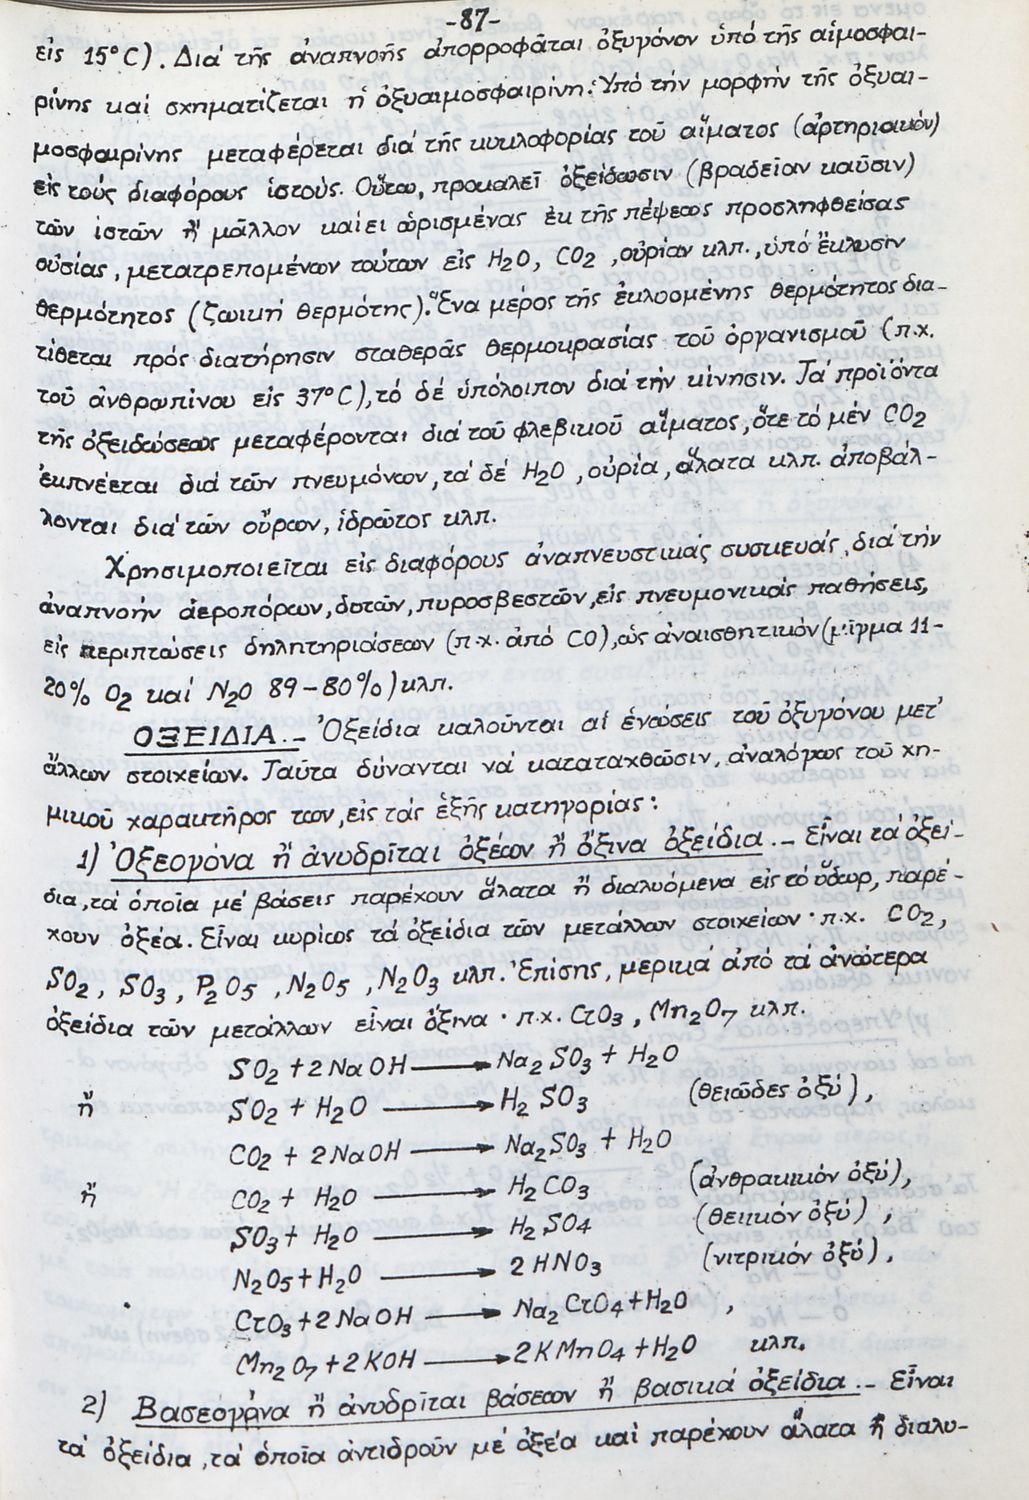 -87-
εἰς 15°C). Διά τῆς ἀναπνοῆς ἀπορροφᾶται ὀξυγόνον ὑπό τῆς αἱμοσφαι-
ρίνης καί σχηματίζεται ἡ ὀξυαιμοσφαιρίνη. Ὑπό τήν μορφήν τῆς ὀξυαι-
μοσφαιρίνης μεταφέρεται διά τῆς κυκλοφορίας τοῦ αἵματος (ἀρτηριακόν)
εἰς τούς διαφόρους ἱστούς. Οὕτω, προκαλεῖ ὀξείδωσιν (βραδεῖαν καῦσιν)
τῶν ἱστῶν ἤ μᾶλλον καίει ὡρισμένας ἐκ τῆς πέψεως προσληφθείσας
οὐσίας, μετατρεπομένων τούτων εἰς H2O, CO2, οὐρίαν κλπ., ὑπό ἔκλυσιν
θερμότητος (ζωική θερμότης). Ἕνα μέρος τῆς ἐκλυομένης θερμότητος δια-
τίθεται πρός διατήρησιν σταθερᾶς θερμοκρασίας τοῦ ὀργανισμοῦ (π.χ.
τοῦ ἀνθρωπίνου εἰς 37°C), τό δέ ὑπόλοιπον διά τήν κίνησιν. Τά προϊόντα
τῆς ὀξειδώσεως μεταφέρονται διά τοῦ φλεβικοῦ αἵματος, ὅτε τό μέν CO2
ἐκπνέεται διά τῶν πνευμόνων, τά δέ H2O, οὐρία, ἅλατα κλπ. ἀποβάλ-
λονται διά τῶν οὔρων, ἱδρῶτος κλπ.
Χρησιμοποιεῖται εἰς διαφόρους ἀναπνευστικάς συσκευάς, διά τήν
ἀναπνοήν ἀεροπόρων, δυτῶν, πυροσβεστῶν, εἰς πνευμονικάς παθήσεις,
εἰς περιπτώσεις δηλητηριάσεων (π.χ. ἀπό CO), ὡς ἀναισθητικόν (μῖγμα 11-
20% O2 καί N2O 89-80%) κλπ.
ΟΞΕΙΔΙΑ.- Ὀξείδια καλοῦνται αἱ ἑνώσεις τοῦ ὀξυγόνου μετ'
ἄλλων στοιχείων. Ταῦτα δύνανται νά καταταχθῶσιν, ἀναλόγως τοῦ χη-
μικοῦ χαρακτῆρος των, εἰς τάς ἑξῆς κατηγορίας:
1) Ὀξεογόνα ἤ ἀνυδρῖται ὀξέων ἤ ὄξινα ὀξείδια.- Εἶναι τά ὀξεί-
δια, τά ὁποῖα μέ βάσεις παρέχουν ἅλατα ἤ διαλυόμενα εἰς τό ὕδωρ, παρέ-
χουν ὀξέα. Εἶναι κυρίως τά ὀξείδια τῶν μετάλλων στοιχείων· π.χ. CO2,
SO2, SO3, P2O5, N2O5, N2O3 κλπ. Ἐπίσης, μερικά ἀπό τά ἀνώτερα
ὀξείδια τῶν μετάλλων εἶναι ὄξινα· π.χ. CrO3, Mn2O7 κλπ.
SO2 + 2NaOH ⟶ Na2SO3 + H2O
ἤ SO2 + H2O ⟶ H2SO3 (θειῶδες ὀξύ),
CO2 + 2NaOH ⟶ Na2SO3 + H2O
ἤ CO2 + H2O ⟶ H2CO3 (ἀνθρακικόν ὀξύ),
SO3 + H2O ⟶ H2SO4 (θειικόν ὀξύ),
N2O5 + H2O ⟶ 2HNO3 (νιτρικόν ὀξύ),
CrO3 + 2NaOH ⟶ Na2CrO4 + H2O,
Mn2O7 + 2KOH ⟶ 2KMnO4 + H2O κλπ.
2) Βασεογόνα ἤ ἀνυδρῖται βάσεων ἤ βασικά ὀξείδια.- Εἶναι
τά ὀξείδια, τά ὁποῖα ἀντιδροῦν μέ ὀξέα καί παρέχουν ἅλατα ἤ διαλυ-